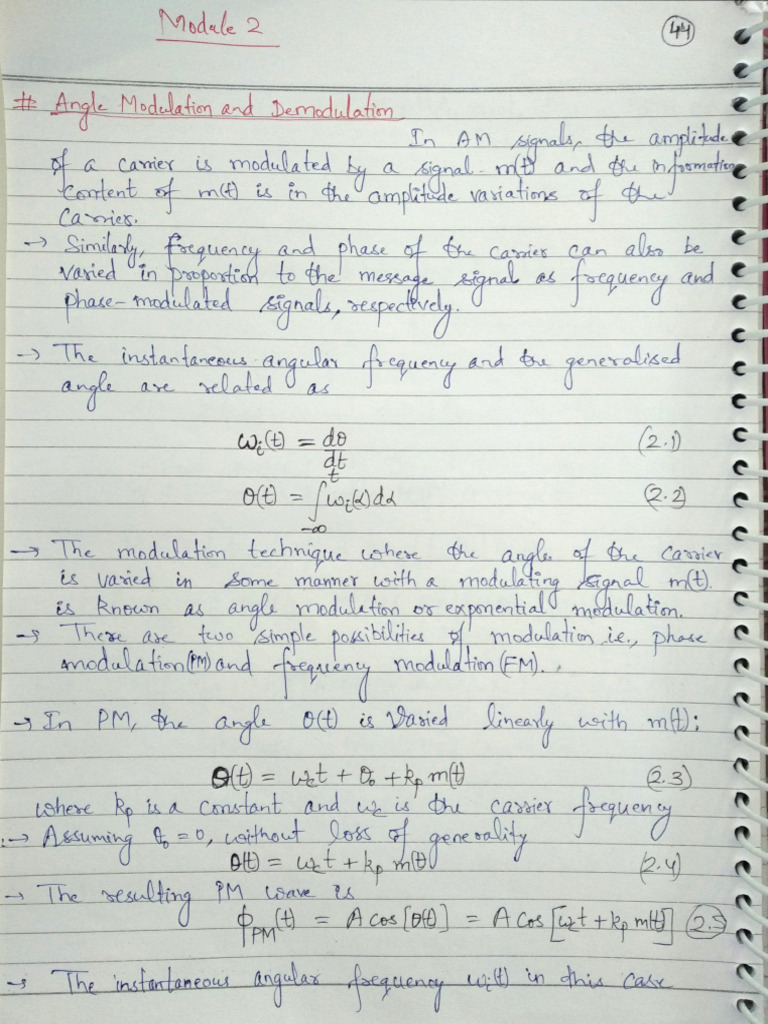 Module 2
44
# Angle Modulation and Demodulation
In AM signals, the amplitude
of a carrier is modulated by a signal m(t) and the infromation
content of m(t) is in the amplitude variations of the
carrier.
→ Similarly, frequency and phase of the carrier can also be
varied in proportion to the message signal as frequency and
phase-modulated signals, respectively.
→ The instantaneous angular frequency and the generalised
angle are related as
ωᵢ(t) = dθ/dt (2.1)
θ(t) = ∫_{-∞}^{t} ωᵢ(α)dα (2.2)
→ The modulation technique where the angle of the carrier
is varied in some manner with a modulating signal m(t).
is known as angle modulation or exponential modulation.
→ There are two simple possibilities of modulation i.e., phase
modulation(PM) and frequency modulation (FM).
→ In PM, the angle θ(t) is varied linearly with m(t):
θ(t) = ω_c t + θ₀ + k_p m(t) (2.3)
where k_p is a constant and ω_c is the carrier frequency
→ Assuming θ₀ = 0, without loss of generality
θ(t) = ω_c t + k_p m(t) (2.4)
→ The resulting PM wave is
ϕ_PM(t) = A cos[θ(t)] = A cos[ω_c t + k_p m(t)] (2.5)
→ The instantaneous angular frequency ωᵢ(t) in this case